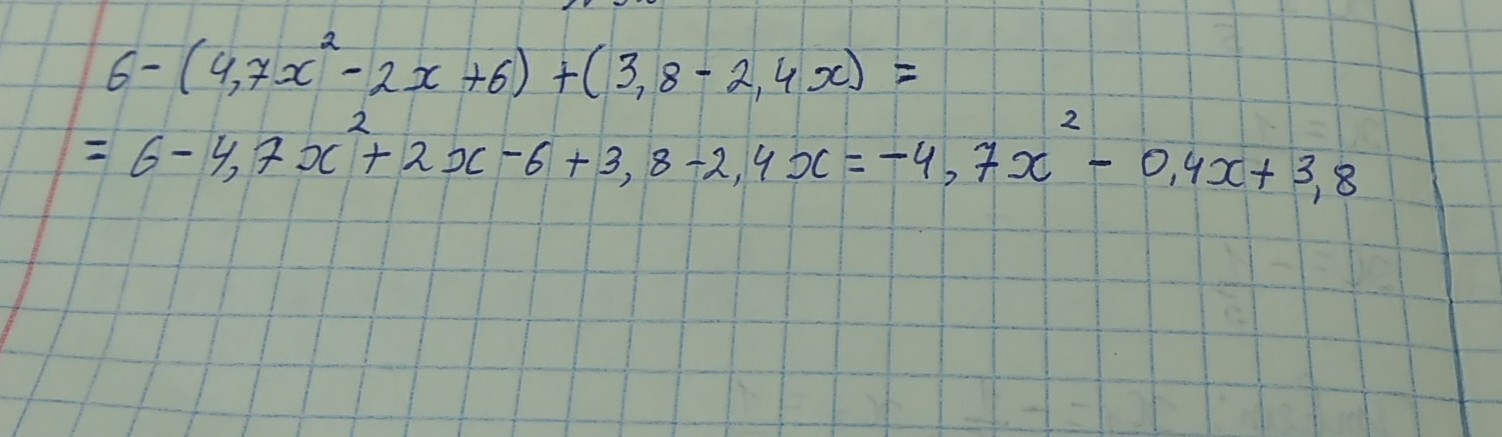 6 - (4,7x² - 2x + 6) + (3,8 - 2,4x) =
= 6 - 4,7x² + 2x - 6 + 3,8 - 2,4x = -4,7x² - 0,4x + 3,8